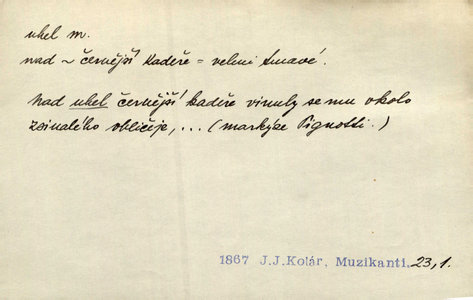 uhel m.
nad ~ černější kadeře = velmi tmavé.
Nad uhel černější kadeře vinuly se mu okolo
zsinalého obličeje, ... (markýze Pignotti.)
1867 J.J.Kolár, Muzikanti. 23,1.